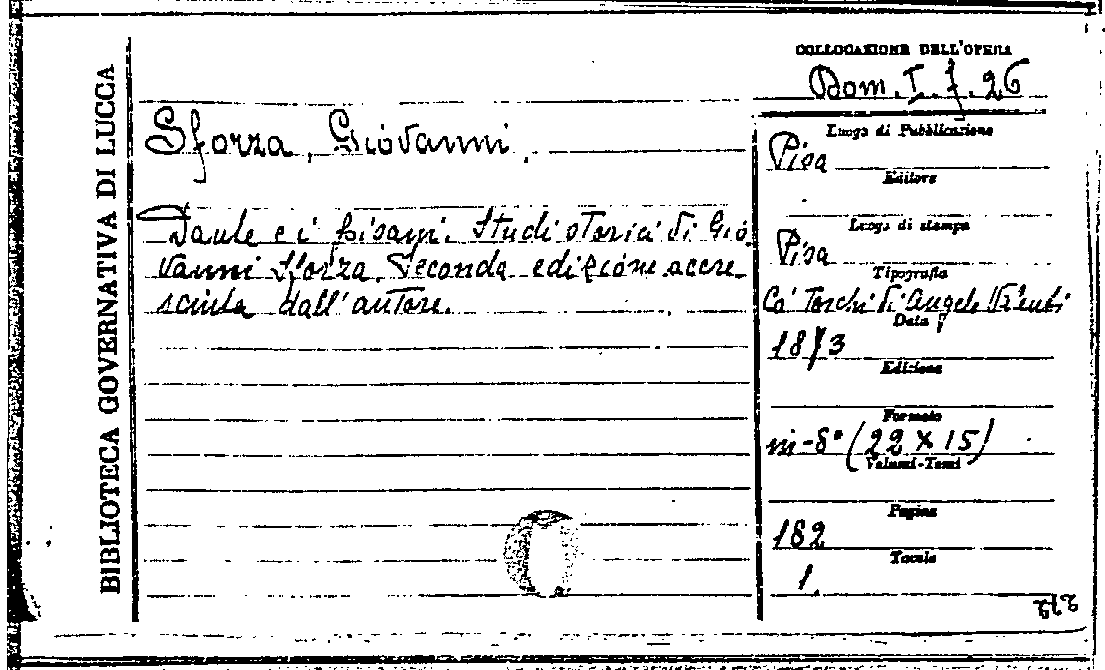 BIBLIOTECA GOVERNATIVA DI LUCCA
Sforza, Giovanni.
Dante e i Pisani. Studi storici di Gio-
vanni Sforza. Seconda edizione accre-
sciuta dall'autore.
COLLOCAZIONE DELL'OPERA
Bom. I. f. 26
Luogo di Pubblicazione
Pisa
Editore
Luogo di stampa
Pisa
Tipografia
Co' Torchi di Angelo Valenti
Data
1873
Edizione
Formato
in-8° (22 x 15)
Volumi-Tomi
Pagine
182
Tavole
1.